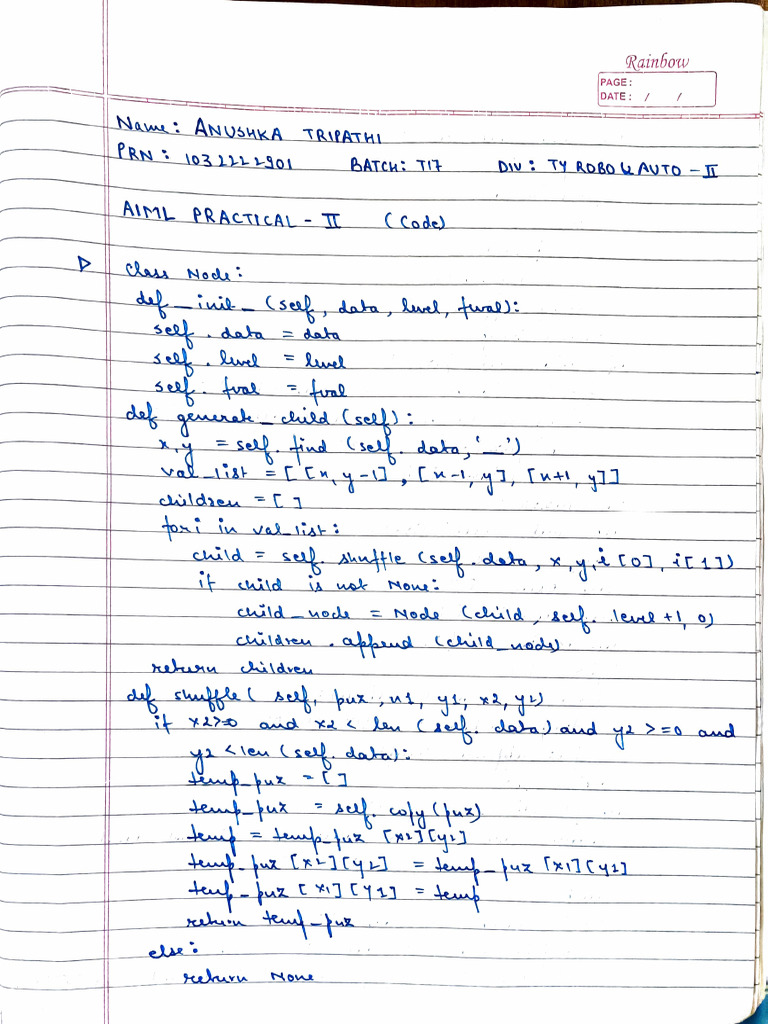 Rainbow
PAGE:
DATE: / /
Name: ANUSHKA TRIPATHI
PRN: 1032222901 BATCH: T17 DIV: TY ROBO & AUTO - II
AIML PRACTICAL - II (Code)
▷ class Node:
def _init_ (self, data, level, fval):
self. data = data
self. level = level
self. fval = fval
def generate_child (self):
x,y = self. find (self. data, '_')
val_list = [ [x, y-1], [x-1, y], [x+1, y]]
children = [ ]
for i in val_list:
child = self. shuffle (self. data, x, y, i [0], i[1])
if child is not None:
child_node = Node (child, self. level +1, 0)
children . append (child_node)
return children
def shuffle ( self, puz, x1, y1, x2, y2)
if x2>=0 and x2 < len (self. data) and y2 >=0 and
y2 < len (self. data):
temp_puz = [ ]
temp_puz = self. copy (puz)
temp = temp_puz [x2][y2]
temp_puz [x2][y2] = temp_puz [x1][y1]
temp_puz [x1][y1] = temp
return temp_puz
else:
return None